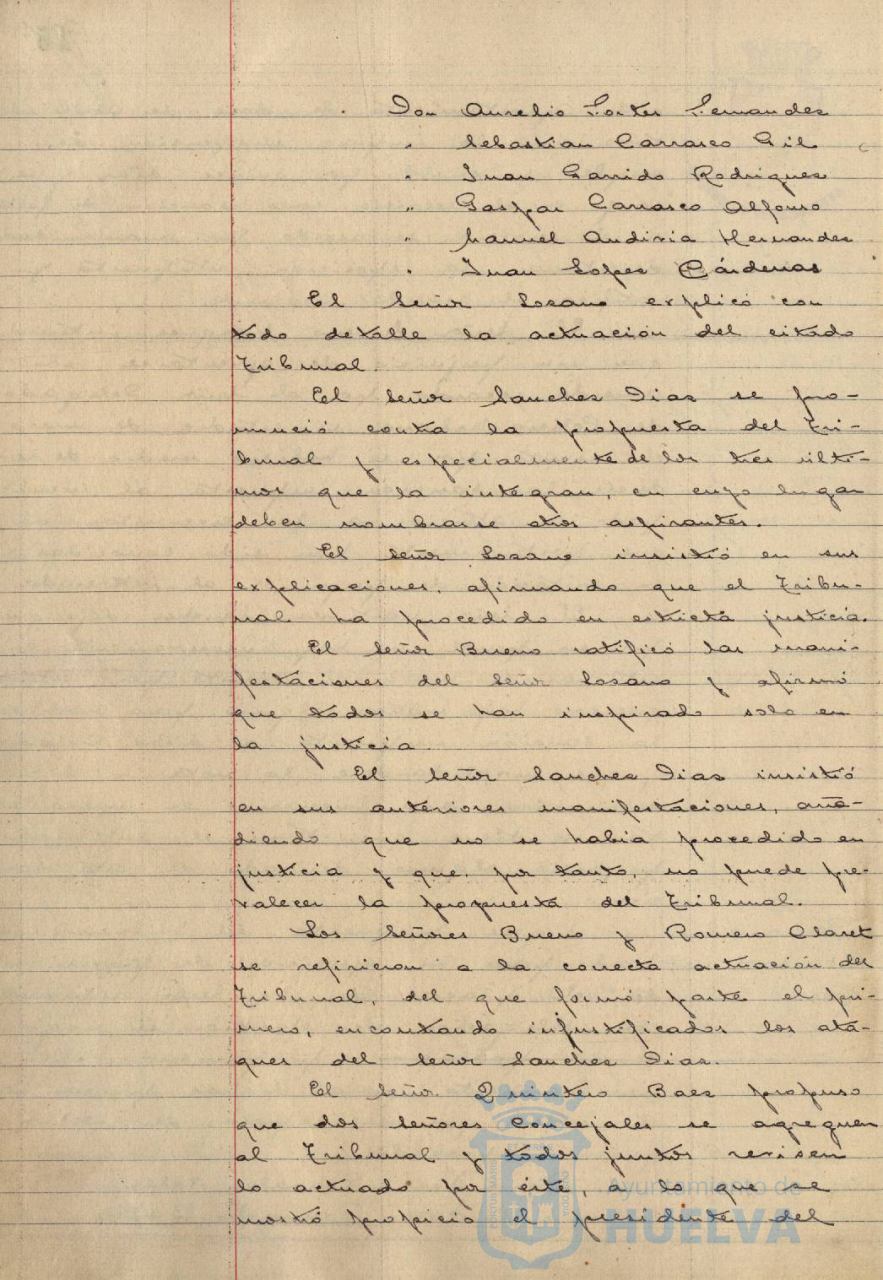 Don Aurelio Portes Fernandez
" Sebastian Carrasco Gil
" Juan Garrido Rodriguez
" Gaspar Carrasco Alfonso
" Manuel Andivia Hernandez
" Juan Lopez Cárdenas
El Señor Lozano explicó con
todo detalle la actuación del citado
Tribunal.
El Señor Sanchez Diaz se pro-
nunció contra la propuesta del Tri-
bunal y especialmente de los tres ulti-
mos que la integran, en cuyo lugar
deben nombrarse otros aspirantes.
El Señor Lozano insistió en sus
explicaciones, afirmando que el Tribu-
nal ha procedido en estricta justicia.
El Señor Bueno ratificó las mani-
festaciones del Señor Lozano y afirmó
que todos se han inspirado solo en
la justicia.
El Señor Sanchez Diaz insistió
en sus anteriores manifestaciones, aña-
diendo que no se habia procedido en
justicia y que, por tanto, no puede pre-
valecer la propuesta del Tribunal.
Los Señores Bueno y Romero Claret
se refirieron a la correcta actuación del
Tribunal, del que formó parte el pri-
mero, encontrando injustificados los ata-
ques del Señor Sanchez Diaz.
El Señor Quintero Baez propuso
que dos Señores Concejales se agreguen
al Tribunal y todos juntos revisen
lo actuado por éste, a lo que se
mostró propicio el presidente del
Ayuntamiento de
HUELVA